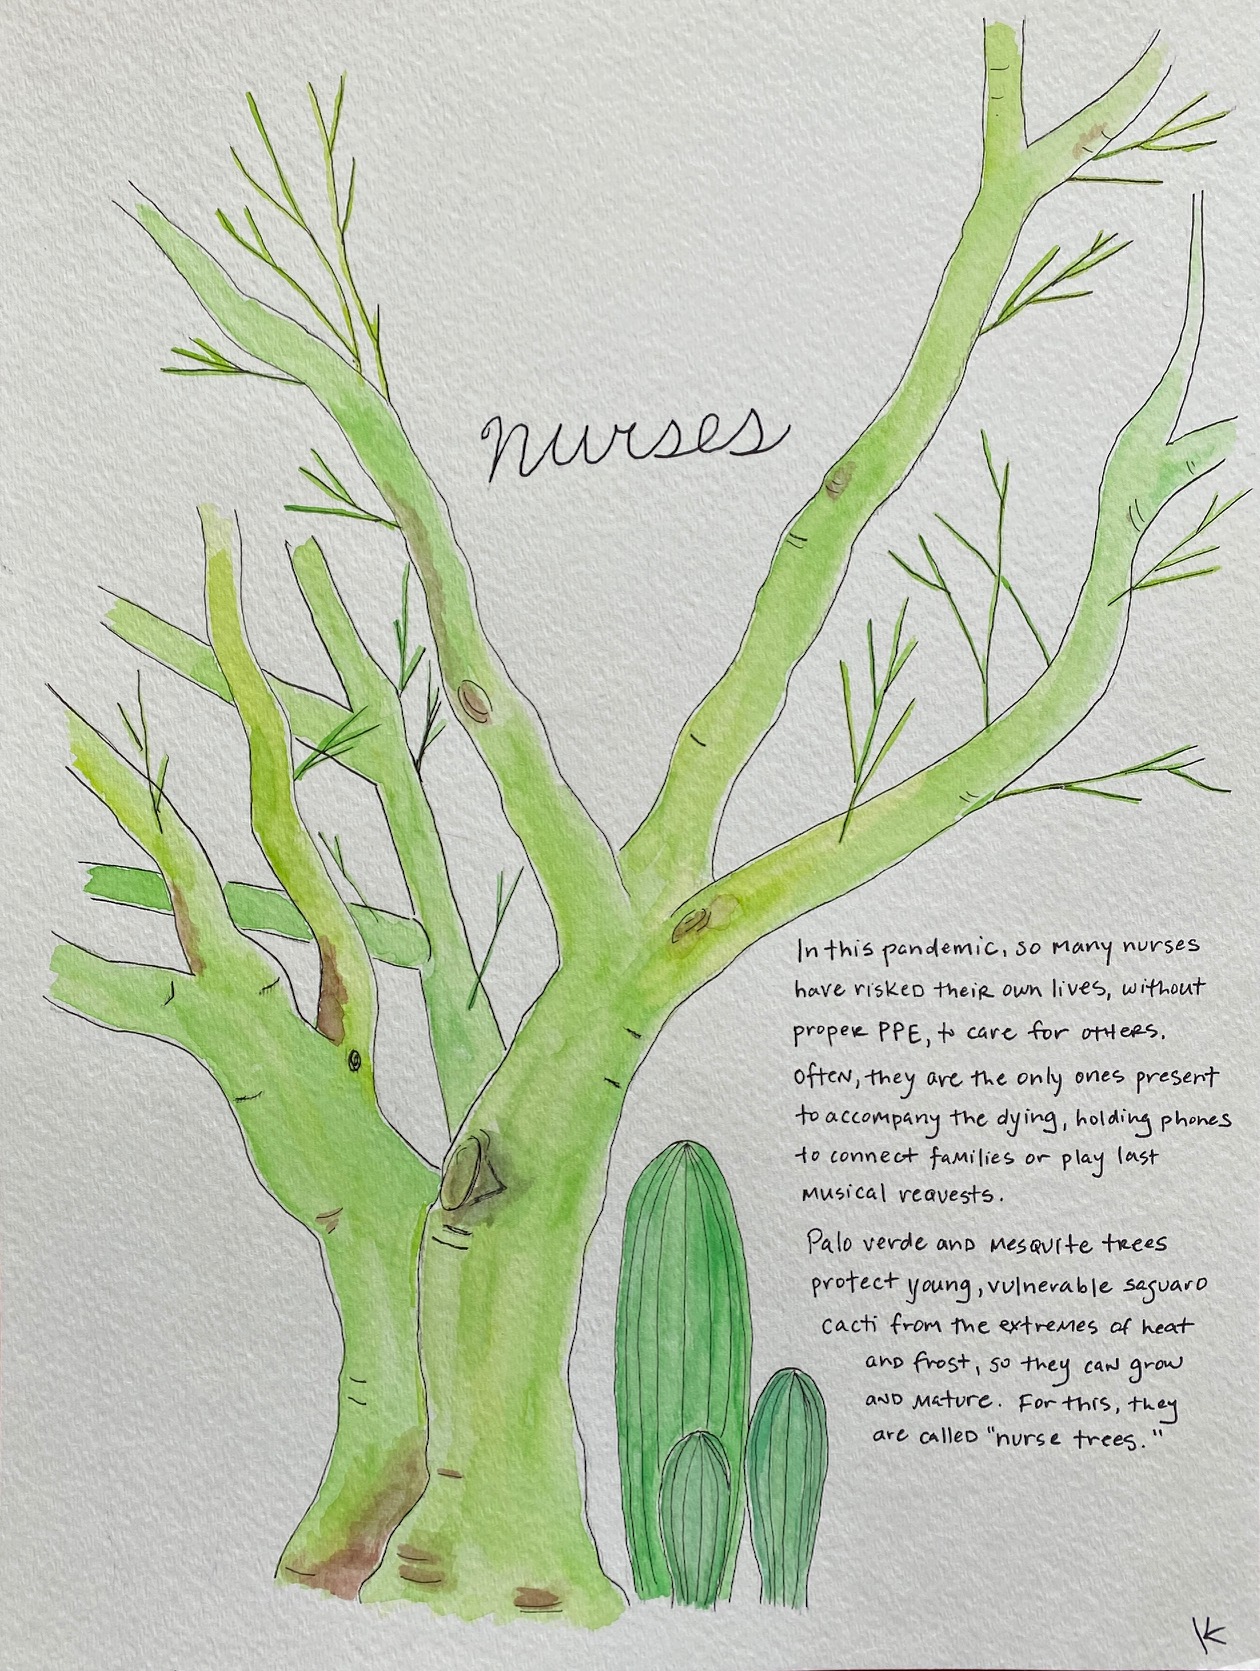 nurses
In this pandemic, so many nurses
have risked their own lives, without
proper PPE, to care for others.
Often, they are the only ones present
to accompany the dying, holding phones
to connect families or play last
musical requests.
Palo verde and mesquite trees
protect young, vulnerable saguaro
cacti from the extremes of heat
and frost, so they can grow
and mature. For this, they
are called "nurse trees."
K